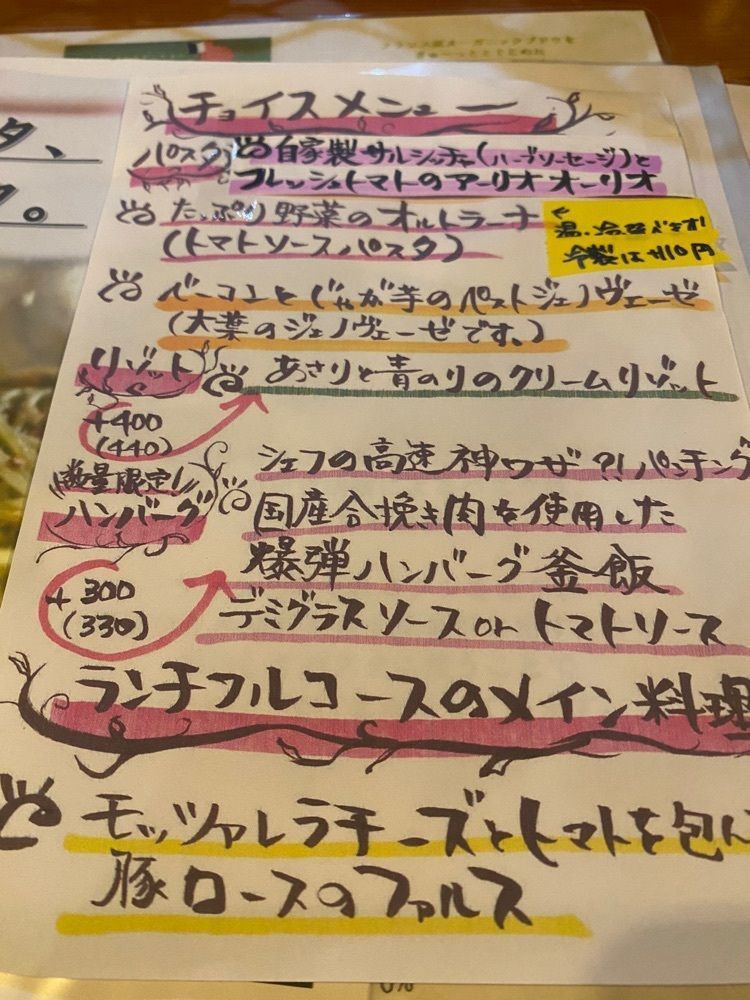 チョイスメニュー
パスタ
自家製サルシッチャ(ハーブソーセージ)と
フレッシュトマトのアーリオオーリオ
たっぷり野菜のオルトラーナ
(トマトソースパスタ)
冷製は110円
ベーコンとじゃが芋のペストジェノヴェーゼ
(大葉のジェノヴェーゼです。)
リゾット
あさりと青のりのクリームリゾット
+400
(440)
シェフの高速神ワザ?!パンチング
数量限定!
ハンバーグ
国産合挽き肉を使用した
爆弾ハンバーグ釜飯
+300
(330)
デミグラスソース or トマトソース
ランチフルコースのメイン料理
モッツァレラチーズとトマトを包ん
豚ロースのファルス